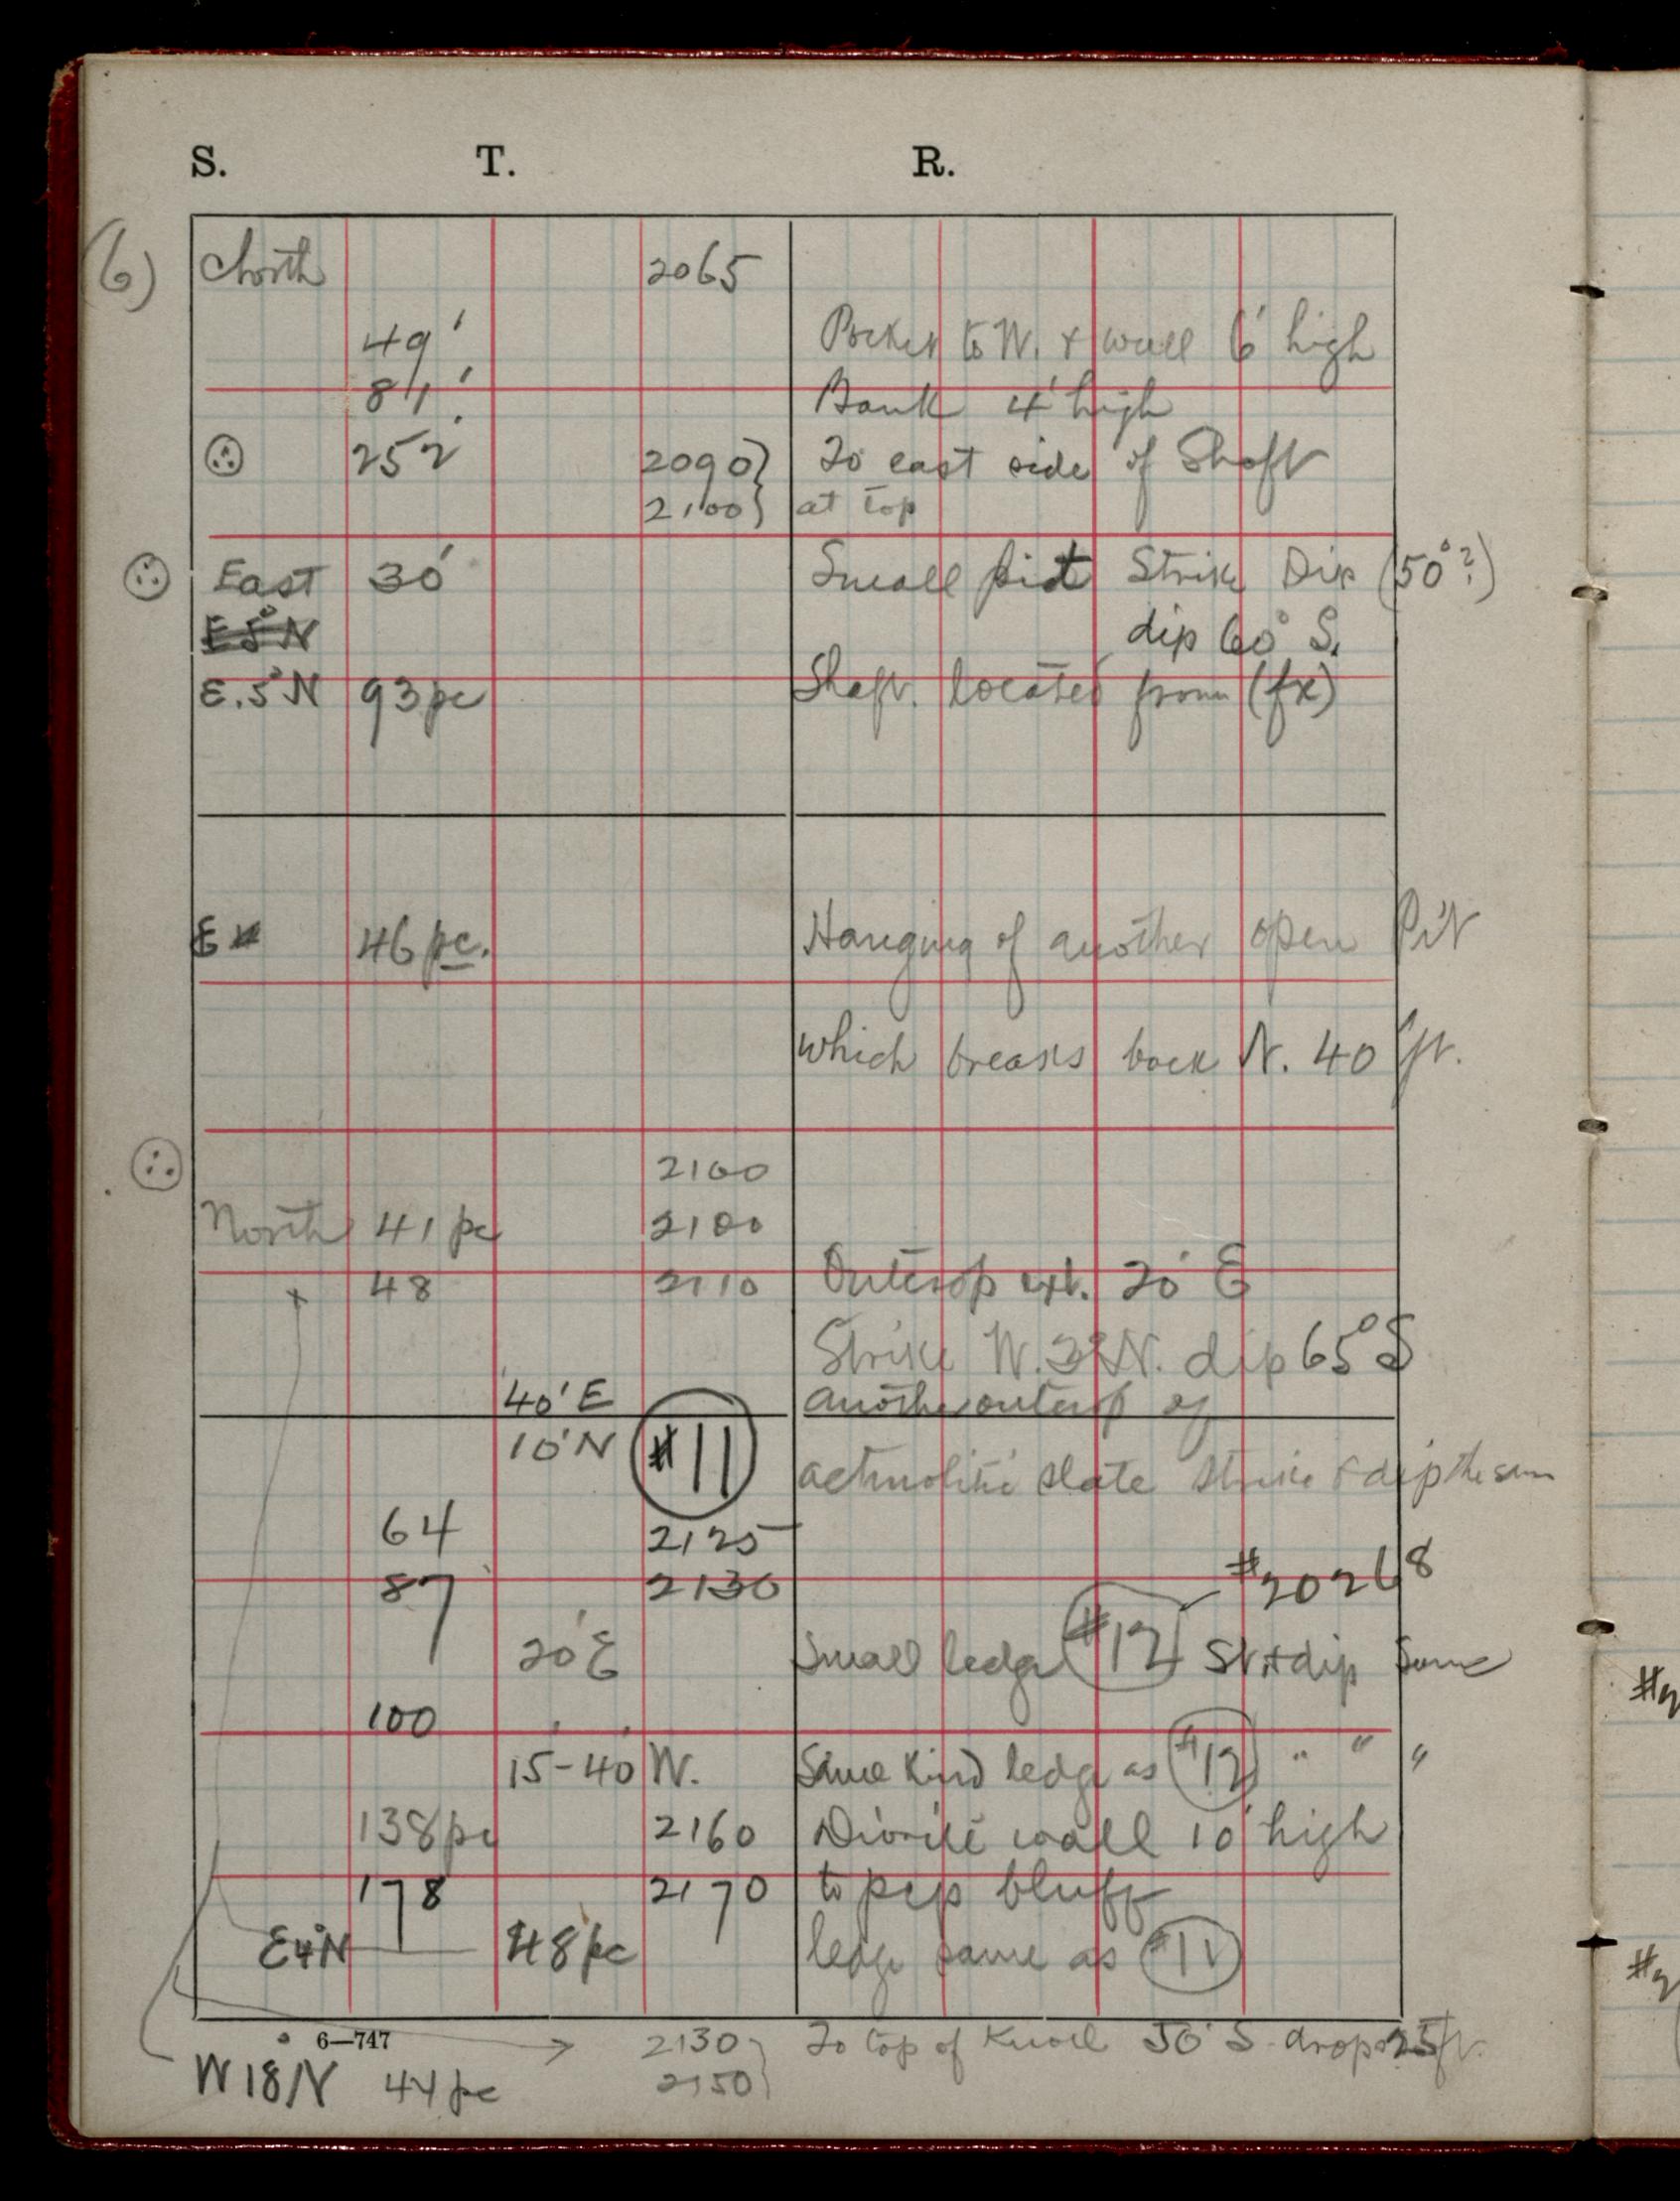 S. T. R.
(6) North 2065
49' Pocket to W. & wall 6' high
81' Bank 4' high
252' 2090} To east side of Shaft
2100} at top
East 30' Small pit Strike Dip (50°?)
E 5° N dip 60° S.
E. 5° N 93 pc Shaft. located from (fx)
E 46 pc. Hanging of another open Pit
which breaks back N. 40 ft.
2100
North 41 pc 2100
x 48 2110 Outcrop ext. 20' E
Strike W. N. dip 65° S
40' E another outcrop of
10' N #11 actinolitic slate strike & dip the same
64 2125
87 2130 #20268
20' E Small ledge #12 St + dip Same
100
15-40 W. Same kind ledge as #12 " " "
138 pc 2160 Diorite wall 10' high
178 2170 to top bluff
E 4° N 48 pc ledge same as #11
6—747 2130} To top of Knoll 50' S. drops 25 ft.
W 18 N 44 pc 2150}
#2
#2